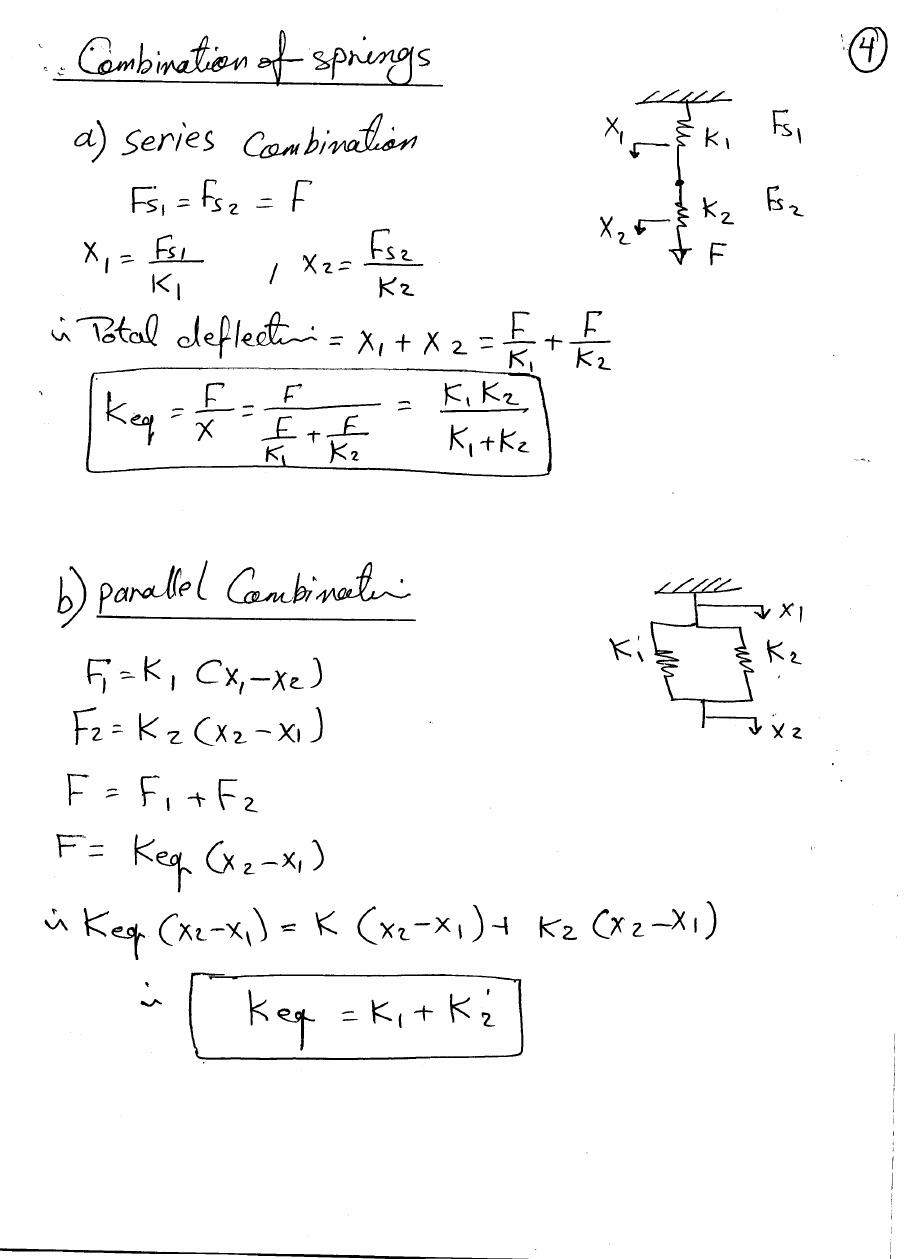 4
Combination of springs
a) series Combination
X1 K1 Fs1
Fs1 = Fs2 = F
X2 K2 Fs2
F
X1 = Fs1/K1 , X2 = Fs2/K2
∴ Total deflection = X1 + X2 = F/K1 + F/K2
Keq = F/X = F/(F/K1 + F/K2) = K1 K2/(K1+K2)
b) parallel Combination
X1
K1 K2
X2
F1 = K1 (x1-x2)
F2 = K2 (x2-x1)
F = F1 + F2
F = Keq (x2-x1)
∴ Keq (x2-x1) = K (x2-x1) + K2 (x2-x1)
∴ Keq = K1 + K2